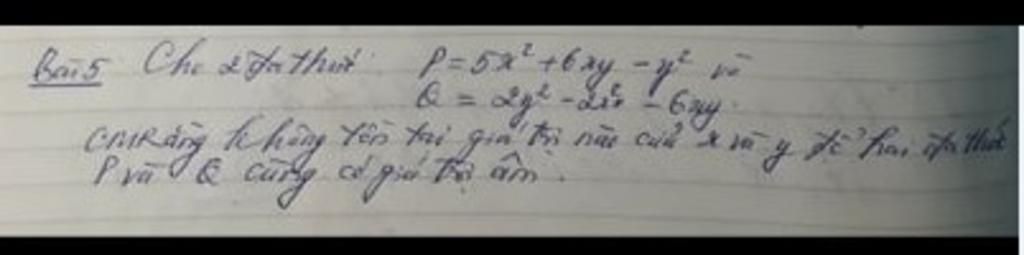 Bài 5 Cho 2 đa thức P = 5x² + 6xy - y² và
Q = 2y² - 2x² - 6xy.
CMRằng không tồn tại giá trị nào của x và y để hai đa thức
P và Q cùng có giá trị âm.